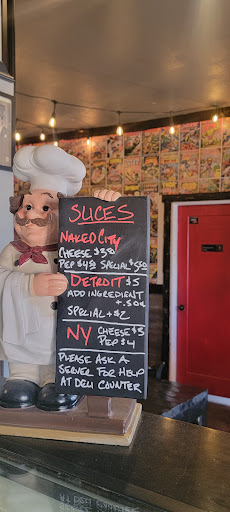 SLICES
NAKED CITY
CHEESE $3.50
PEP $4.50 SPECIAL $5.50
DETROIT $5
ADD INGREDIENT
+.50¢
SPECIAL +$2
NY CHEESE $3
PEP $4
PLEASE ASK A
SERVER FOR HELP
AT DELI COUNTER